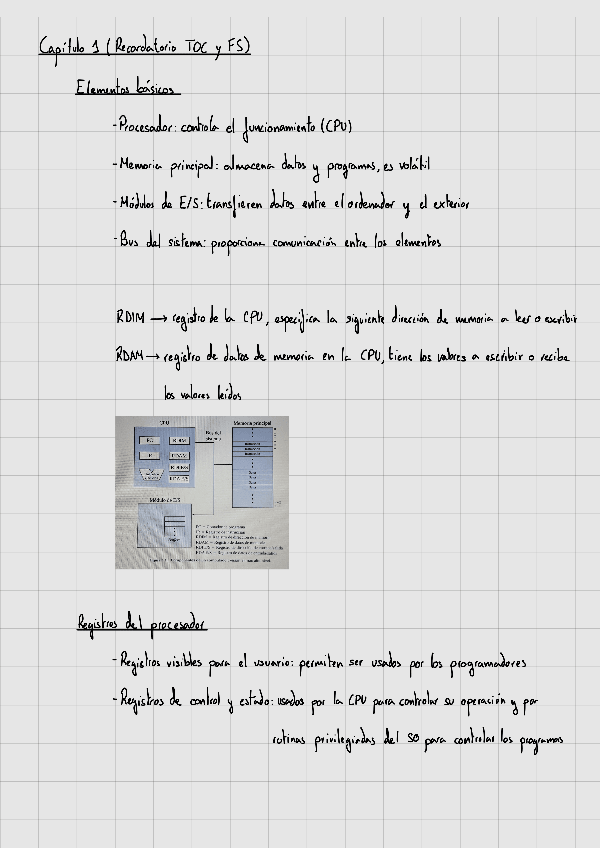 Capítulo 1 (Recordatorio TOC y FS)
Elementos básicos
- Procesador: controla el funcionamiento (CPU)
- Memoria principal: almacena datos y programas, es volátil
- Módulos de E/S: transfieren datos entre el ordenador y el exterior
- Bus del sistema: proporciona comunicación entre los elementos
RDIM → registro de la CPU, especifica la siguiente dirección de memoria a leer o escribir
RDAM → registro de datos de memoria en la CPU, tiene los valores a escribir o recibe
los valores leídos
CPU
Bus del
sistema
Memoria principal
PC
RDIM
IR
RDAM
Módulo de E/S
Registros del procesador
- Registros visibles para el usuario: permiten ser usados por los programadores
- Registros de control y estado: usados por la CPU para controlar su operación y por
rutinas privilegiadas del SO para controlar los programas